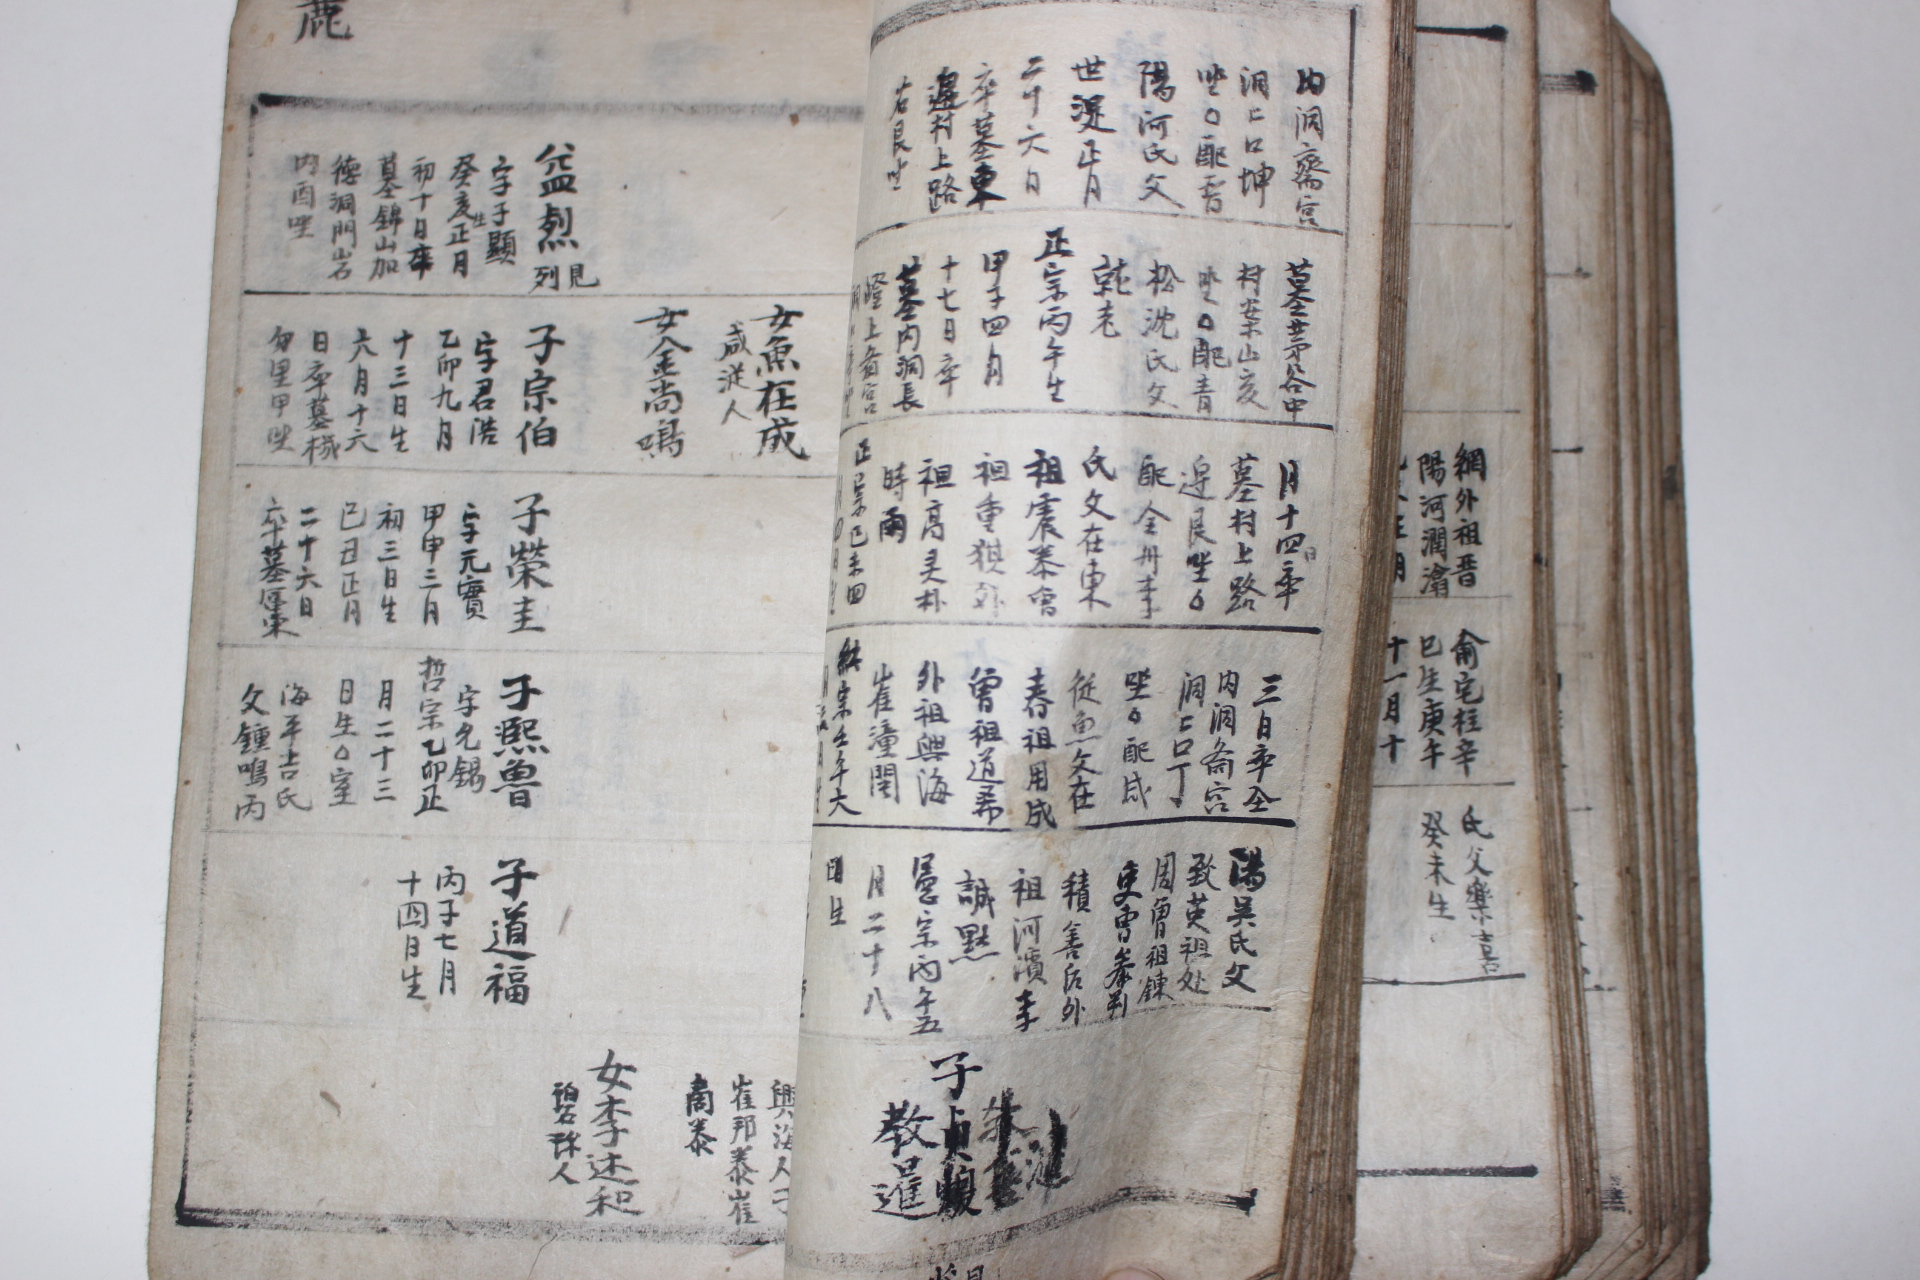 網外祖晋
陽河潤滄
俞宅柱辛
巳生庚午
十一月十
氏父樂喜
癸未生
均洞齋宮
洞上口坤
坐○配晋
陽河氏父
世浞正月
二十六日
卒墓東
邊村上路
若艮坐
墓茅谷中
村案山亥
坐○配青
松沈氏父
乾老
正宗丙午生
甲子四月
十七日卒
墓内洞長
月十四日卒
墓村上路
邊艮坐○
配全州李
氏父在東
祖震泰曾
祖重祺外
祖高灵朴
時雨
正宗己未四
三日卒全
内洞斋宮
洞上口丁
坐○配咸
從魚父在
春祖用成
曾祖道希
外祖興海
崔潼閏
純宗壬午大
陽吴氏父
致英祖处
周曾祖鍊
吏曹参判
積善后外
祖河濱李
誠默
憲宗丙午五
月二十八
日生
子貞馥
教進
鹿
益烈
見列
字子顯
癸亥生正月
初十日卒
墓錦山加
德洞門岩
内酉坐
女魚在成
咸從人
女金尚鳴
子宗伯
字君浩
乙卯九月
十三日生
六月十六
日卒墓械
匆里甲坐
子榮圭
字元實
甲申三月
初三日生
己丑正月
二十六日
卒墓厘東
子熙魯
字允錫
哲宗乙卯正
月二十三
日生○室
海平吉氏
父鍾鳴丙
子道福
丙子七月
十四日生
興海人子
崔邦泰崔
尚泰
女李述和
碧珍人